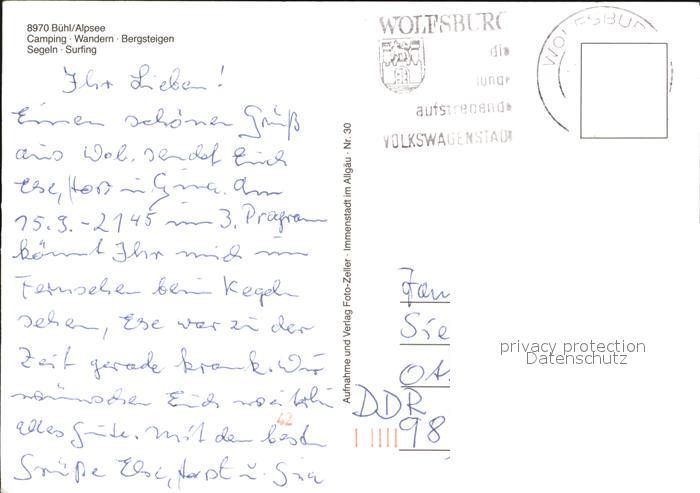 8970 Bühl/Alpsee
Camping · Wandern · Bergsteigen
Segeln · Surfing
WOLFSBURG
die
junge
aufstrebende
VOLKSWAGENSTADT
WOLFSBUR
Ihr Lieben!
Einen schönen Gruß
aus Wob. sendet Euch
Else, Horst u. Gina. Am
15.9. - 21 45 im 3. Program
könnt Ihr mich im
Fernsehen beim Kegeln
sehen, Else war zu der
Zeit gerade krank. Wir
wünschen Euch weiterhin
alles Gute. Mit den besten
Grüße Else, Horst u. Gina
42
Aufnahme und Verlag Foto-Zeller · Immenstadt im Allgäu · Nr. 30
Fam
Sie
Ot.
DDR
98
privacy protection
Datenschutz